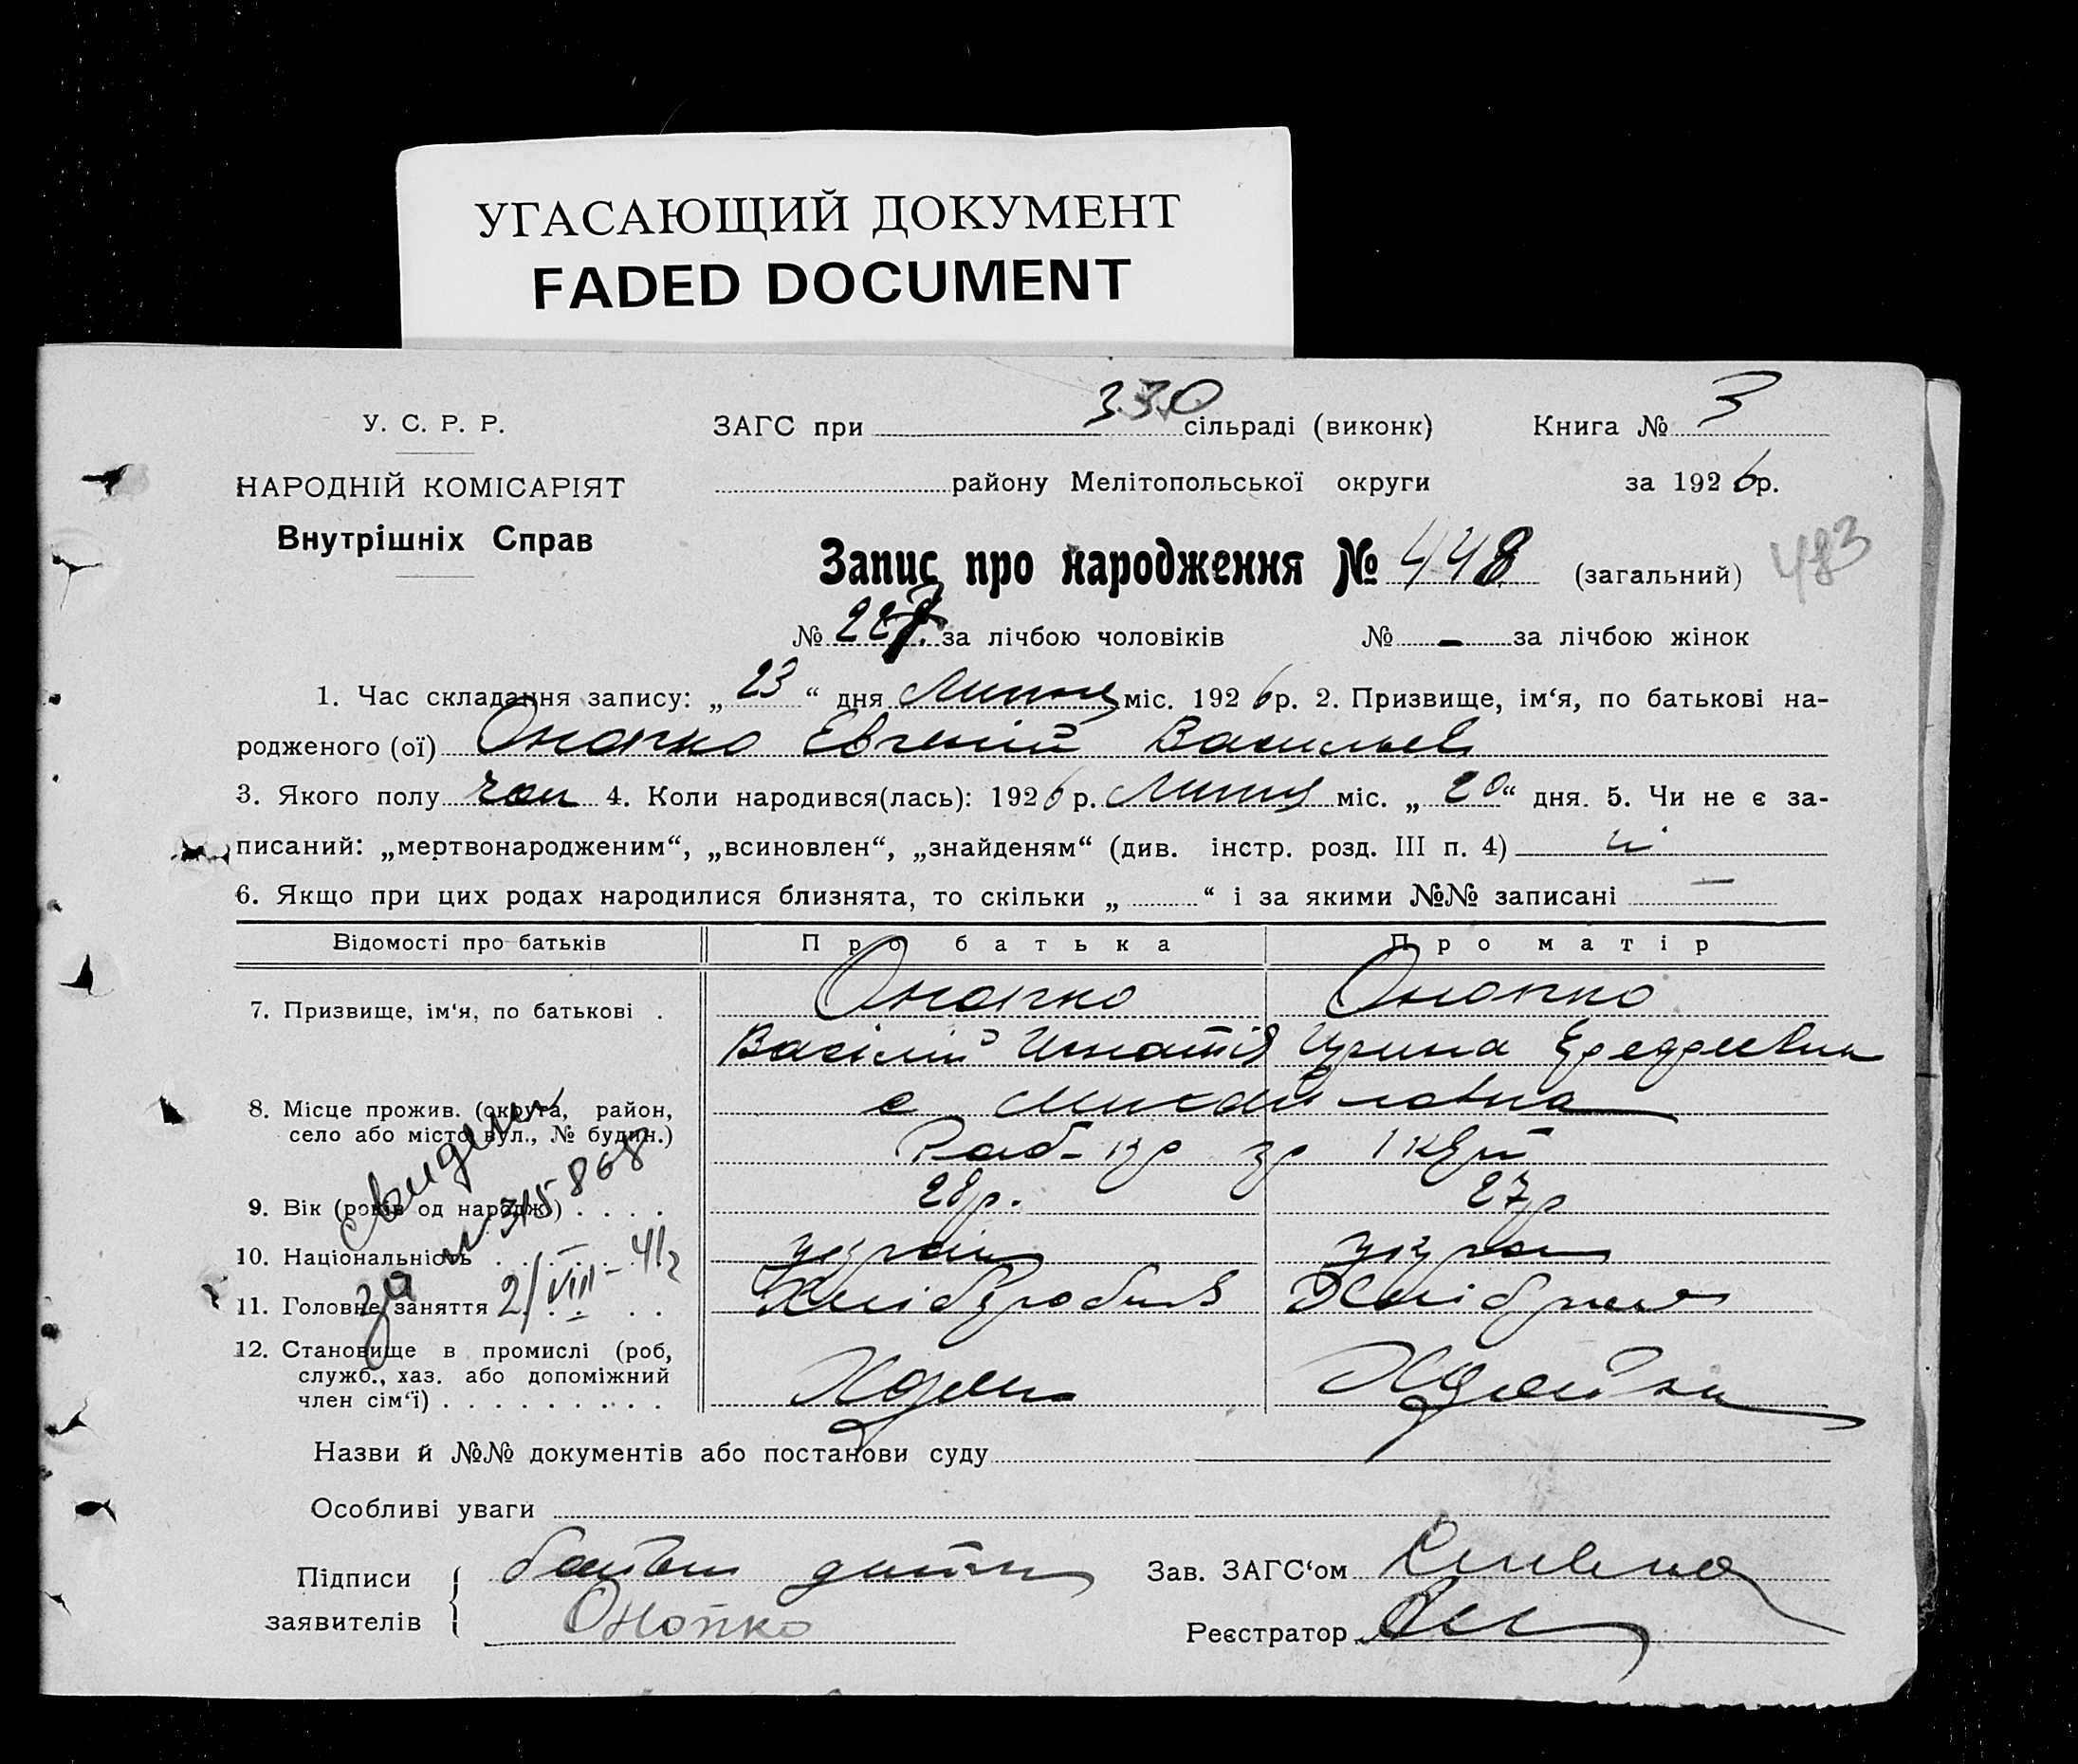 УГАСАЮЩИЙ ДОКУМЕНТ
FADED DOCUMENT
У. С. Р. Р.
НАРОДНІЙ КОМІСАРІЯТ
Внутрішніх Справ
330
ЗАГС при сільраді (виконк)
Книга № 3
району Мелітопольської округи
за 1926р.
Запис про народження № 448 (загальний)
483
№ 227 за лічбою чоловіків № - за лічбою жінок
1. Час складання запису: „23“ дня Липня міс. 1926р. 2. Призвище, ім‘я, по батькові на-
родженого (ої) Онопко Евгеній Васильев
3. Якого полу чол 4. Коли народився(лась): 1926р. Липня міс. „20“ дня. 5. Чи не є за-
писаний: „мертвонародженим“, „всиновлен“, „знайденям“ (див. інстр. розд. III п. 4) ні
6. Якщо при цих родах народилися близнята, то скільки „ “ і за якими №№ записані —
Відомості про батьків
Про батька
Про матір
7. Призвище, ім‘я, по батькові .
Онопко
Онопко
Васілій Ігнатів
Ирина
8. Місце прожив. (округа, район,
село або місто вул., № будин.)
с. Михайловка
9. Вік (років од народж.) . . . .
28р.
27р
10. Національність . . . . . .
україн
укра
11. Головне заняття . . . .
Хліборобив
12. Становище в промислі (роб,
служб., хаз. або допоміжний
член сім‘ї) . . . . . . . . . .
за № 315868
2/VIII-41
Назви й №№ документів або постанови суду
Особливі уваги
Підписи
заявителів
Онопко
Зав. ЗАГС‘ом
Реєстратор